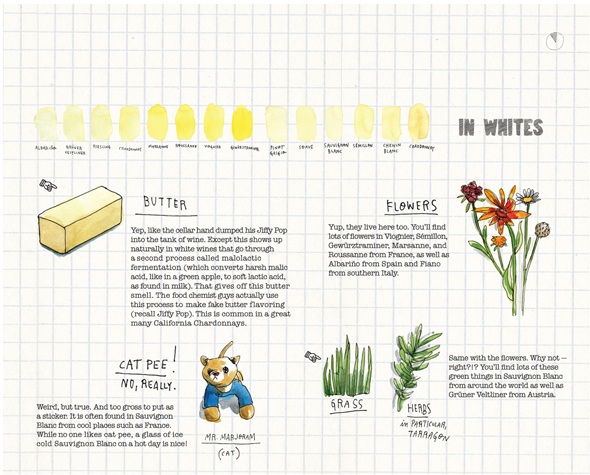 IN WHITES
ALBARIÑO
GRÜNER VELTLINER
RIESLING
CHARDONNAY
MARSANNE
ROUSSANNE
VIOGNIER
GEWÜRZTRAMINER
PINOT GRIGIO
SOAVE
SAUVIGNON BLANC
SÉMILLON
CHENIN BLANC
CHARDONNAY
BUTTER
Yep, like the cellar hand dumped his Jiffy Pop
into the tank of wine. Except this shows up
naturally in white wines that go through
a second process called malolactic
fermentation (which converts harsh malic
acid, like in a green apple, to soft lactic acid,
as found in milk). That gives off this butter
smell. The food chemist guys actually use
this process to make fake butter flavoring
(recall Jiffy Pop). This is common in a great
many California Chardonnays.
FLOWERS
Yup, they live here too. You'll find
lots of flowers in Viognier, Sémillon,
Gewürztraminer, Marsanne, and
Roussanne from France, as well as
Albariño from Spain and Fiano
from southern Italy.
CAT PEE!
NO, REALLY.
Weird, but true. And too gross to put as
a sticker. It is often found in Sauvignon
Blanc from cool places such as France.
While no one likes cat pee, a glass of ice
cold Sauvignon Blanc on a hot day is nice!
MR. MARJORAM
(CAT)
GRASS
HERBS
in PARTICULAR,
TARRAGON
Same with the flowers. Why not —
right?!? You'll find lots of these
green things in Sauvignon Blanc
from around the world as well as
Grüner Veltliner from Austria.